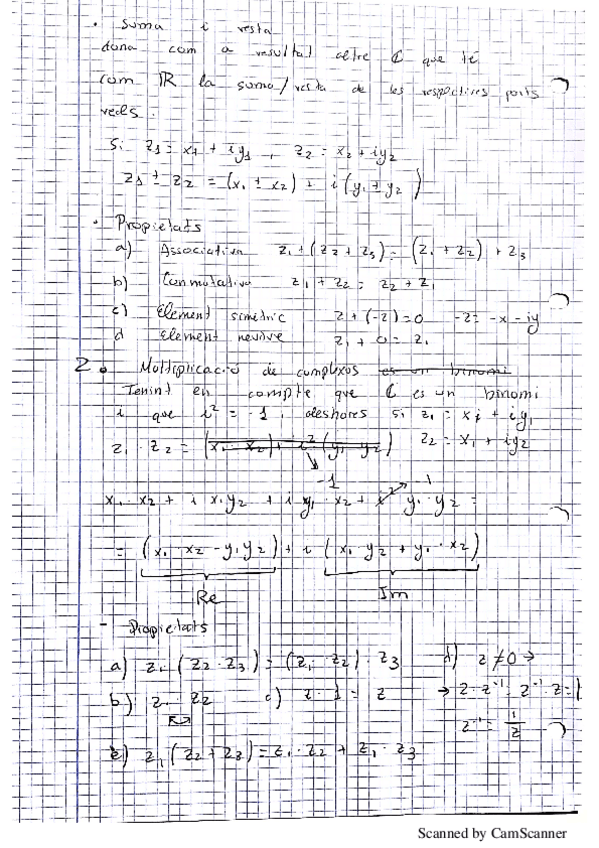 · Suma i resta
dona com a resultat altre ℂ que té
com ℝ la suma/resta de les respectives parts
reals.
Si z₁ = x₁ + iy₁, z₂ = x₂ + iy₂
z₁ ± z₂ = (x₁ ± x₂) + i(y₁ ± y₂)
· Propietats
a) Associativa z₁ + (z₂ + z₃) = (z₁ + z₂) + z₃
b) Conmutativa z₁ + z₂ = z₂ + z₁
c) Element simètric z + (-z) = 0 -z = -x - iy
d Element neutre z₁ + 0 = z₁
2. Multiplicació de complexos es un binomi
Tenint en compte que ℂ es un binomi
i que i² = -1, aleshores si z₁ = x₁ + iy₁
z₁ · z₂ = (x₁ · x₂) + i²(y₁ · y₂) z₂ = x₁ + iy₂
-1
x₁ · x₂ + i x₁y₂ + i y₁ · x₂ + i² y₁ · y₂ =
= (x₁ · x₂ - y₁y₂) + i (x₁ · y₂ + y₁ · x₂)
Re Im
- Propietats
a) z₁ · (z₂ · z₃) = (z₁ · z₂) · z₃ d) z ≠ 0 →
b) z₁ · z₂ c) z · 1 = z → z · z⁻¹ = z⁻¹ · z = 1
z⁻¹ = 1/z
e) z₁ (z₂ + z₃) = z₁ · z₂ + z₁ · z₃
Scanned by CamScanner